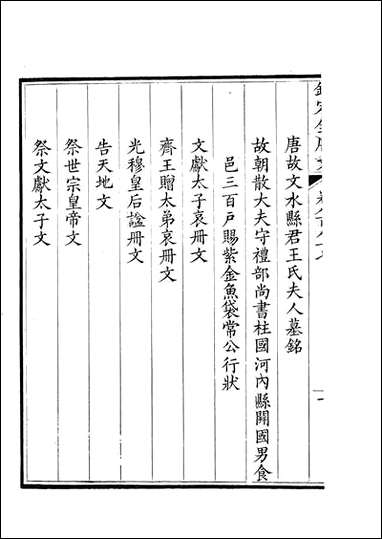 唐故文水縣君王氏夫人墓銘
故朝散大夫守禮部尚書柱國河內縣開國男食
邑三百戶賜紫金魚袋常公行狀
文獻太子哀冊文
齊王贈太弟哀冊文
光穆皇后諡冊文
告天地文
祭世宗皇帝文
祭文獻太子文